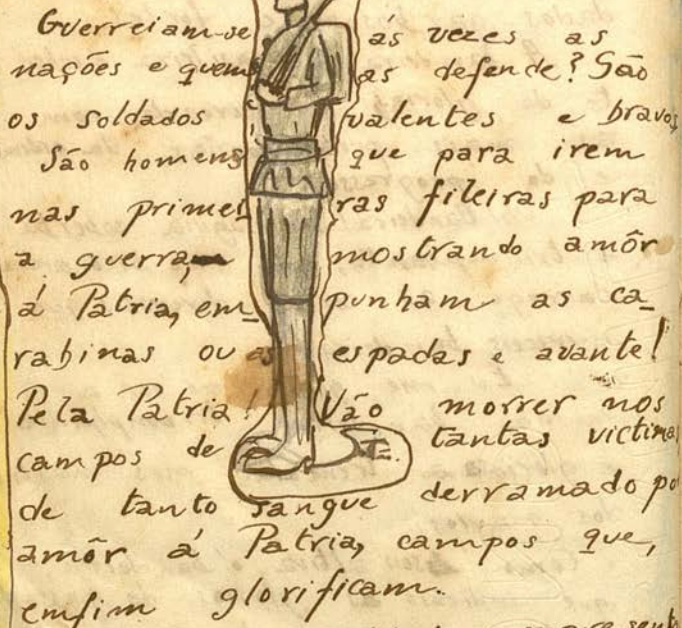 Guerreiam-se ás vezes as
nações e quem as defende? São
os soldados valentes e bravos
São homens que para irem
nas primei ras fileiras para
a guerra, mostrando amôr
á Patria, em- punham as ca-
rabinas ou as espadas e avante!
Pela Patria! Vão morrer nos
campos de tantas victimas
de tanto sangue derramado po
amôr á Patria, campos que,
emfim glorificam.